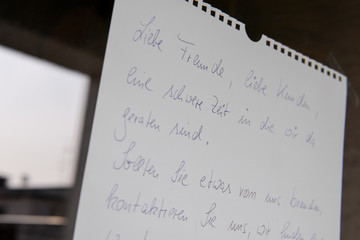 Liebe Freunde, liebe Kunden,
eine schwere Zeit in die wir da
geraten sind.
Sollten Sie etwas von uns brauchen,
kontaktieren Sie uns, wir finden